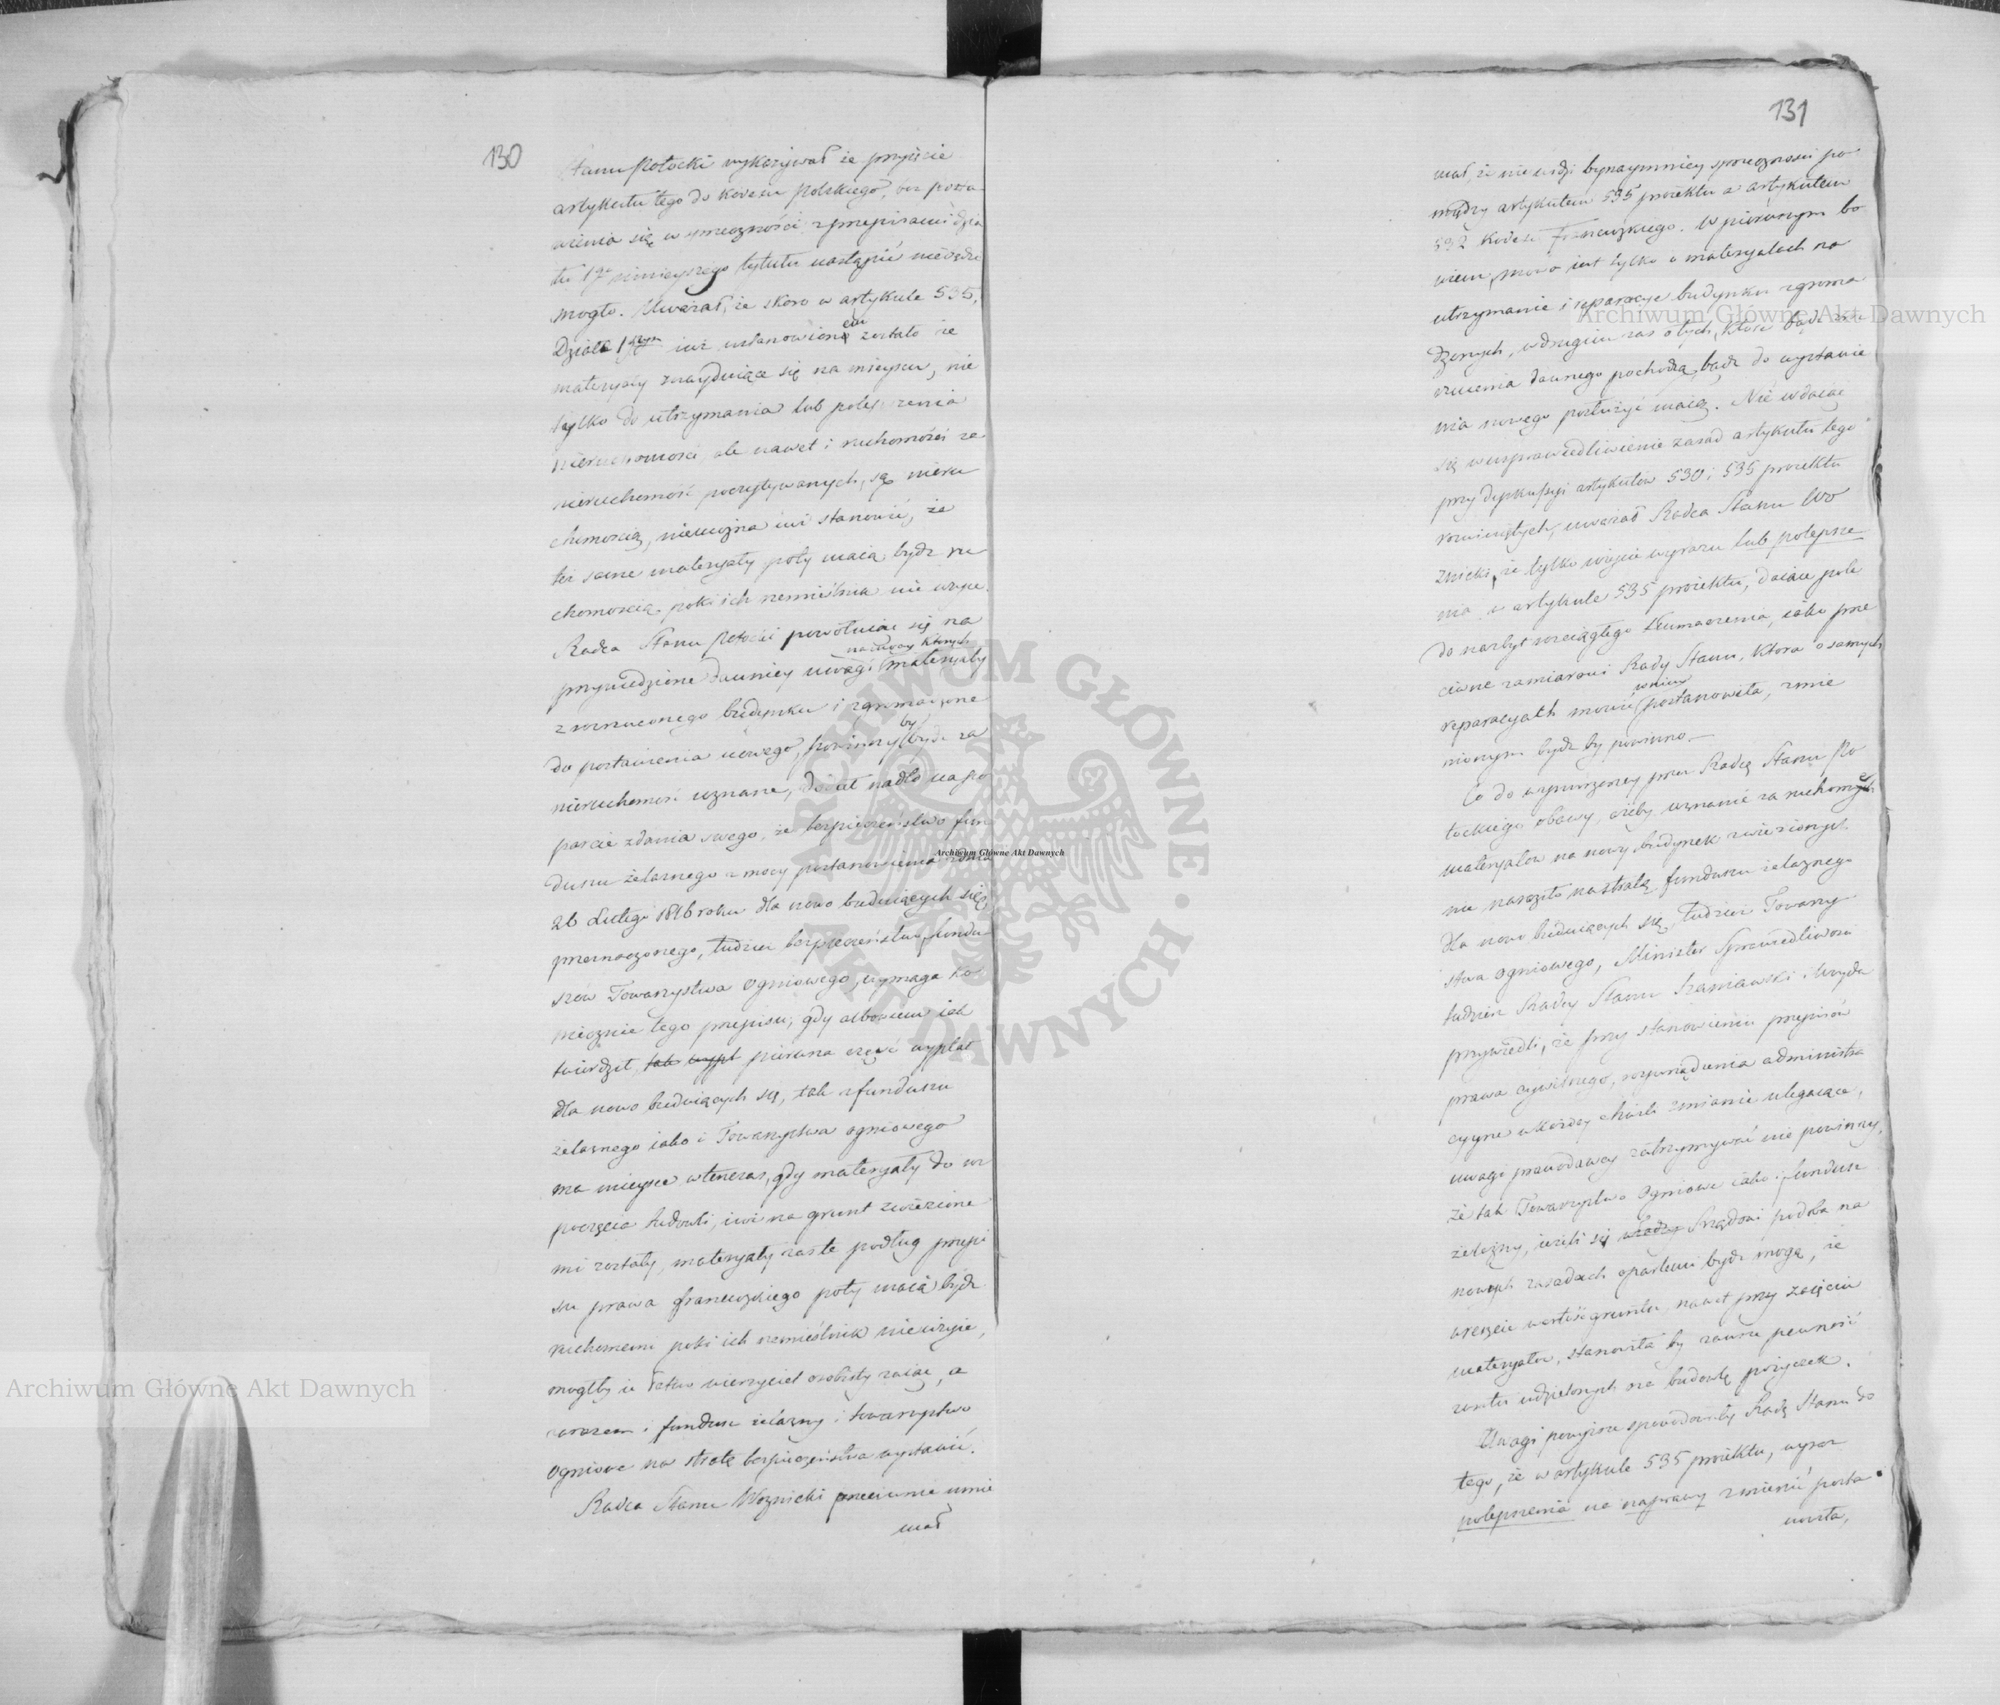 130
Stanu Potocki wykazywał że przyięcie
artykułu tego do kodexu Polskiego, bez posta-
wienia się w sprzeczności z przepisami dzia
łu 1go ninieyszego tytułu nastąpić nie będzie
mogło. Uważał, że skoro w artykule 535,
Działu 1szym iuż ustanowionem zostało że
materyały znayduiące się na mieyscu, nie
tylko do utrzymania lub polepszenia
nieruchomości, ale nawet i ruchomości za
nieruchomość poczytywanych, są nieru
chomością, niemożna iuż stanowić, że
też same materyały póty maią bydź ru
chomością, póki ich rzemieślnik nie użyie.
Radca Stanu Potocki powołuiąc się na
przywiedzione dawniey uwagi na mocy których materyały
z rozrzuconego budynku i zgromadzone
do postawienia nowego, powinny by bydź za
nieruchomość uznane, dodał nadto na po
parcie zdania swego, że bezpieczeństwo fun
duszu żelaznego z mocy postanowienia z dnia
26 Lutego 1816 roku dla nowo buduiących się
przeznaczonego, tudzież bezpieczeństwo fundu
szów Towarzystwa Ogniowego, wymaga ko
niecznie tego przepisu, gdy albowiem iak
twierdził, tak wypł pierwsza część wypłat
dla nowo buduiących się, tak z funduszu
żelaznego iako i Towarzystwa ogniowego
ma mieysce wtenczas, gdy materyały do ur
poczęcia budowli, iuż na grunt zwiezione
mi zostały, materyały zaś te podług przepi
su prawa francuzkiego póty maią bydź
ruchomemi póki ich rzemieślnik nieużyie,
mógłby ie łatwo wierzyciel osobisty zaiąć, a
zarazem i fundusz żelazny i towarzystwo
Ogniowe na stratę bezpieczeństwa wystawić.
Radca Stanu Woźnicki przeciwnie mnie
mał
131
mał, że nie widzi bynaymniey sprzeczności po
między artykułem 535 proiektu a artykułem
532 kodexu Francuzkiego. W pierwszym bo
wiem, mowa iest tylko o materyałach na
utrzymanie i reparacye budynku zgroma
dzonych, w drugim zaś o tych, które bądź z roz
rzucenia dawnego pochodzą, bądź do wystawie
nia nowego posłużyć maią. Nie wdaiąc
się w usprawiedliwienie zasad artykułu tego
przy dyskussyi artykułów 530 i 535 proiektu
rozwiniętych, uważał Radca Stanu Wo
źnicki, że tylko użycie wyrazu lub polepsze
nia w artykule 535 proiektu, daiące pole
do nazbyt rozciągłego tłumaczenia, iako prze
ciwne zamiarowi Rady Stanu, która o samych
reparacyach mówić w nim postanowiła, zmie
nionym bydź by powinno.—
Co do wynurzoney przez Radcę Stanu Po
tockiego obawy, ażeby uznanie za ruchome
materyałów na nowy budynek zwiezionych
nie naraziło na stratę funduszu żelaznego
dla nowo buduiących się, tudzież Towarzy
stwa Ogniowego, Minister Sprawiedliwości
tudzież Radcy Stanu Szaniawski i Woyda
przywiedli, że przy stanowieniu przepisów
prawa cywilnego, rozporządzenia administra
cyyne w każdey chwili zmianie ulegaiące,
uwagi prawodawcy zatrzymywać nie powinny,
że tak Towarzystwo Ogniowe iako i fundusz
żelazny, ieżeli się władzy Rządowi podoba na
nowych zasadach opartemi bydź mogą, że
wreszcie wartość gruntu, nawet przy zaięciu
materyałów, stanowiła by zawsze pewność
zwrotu udzielonych na budowlę pożyczek.
Uwagi powyższe spowodowały Radę Stanu do
tego, że w artykule 535 proiektu, wyraz
polepszenia na naprawy zmienić posta
nowiła,
Archiwum Główne Akt Dawnych
Archiwum Główne Akt Dawnych
Archiwum Główne Akt Dawnych
ARCHIWUM GŁÓWNE · AKT DAWNYCH ·